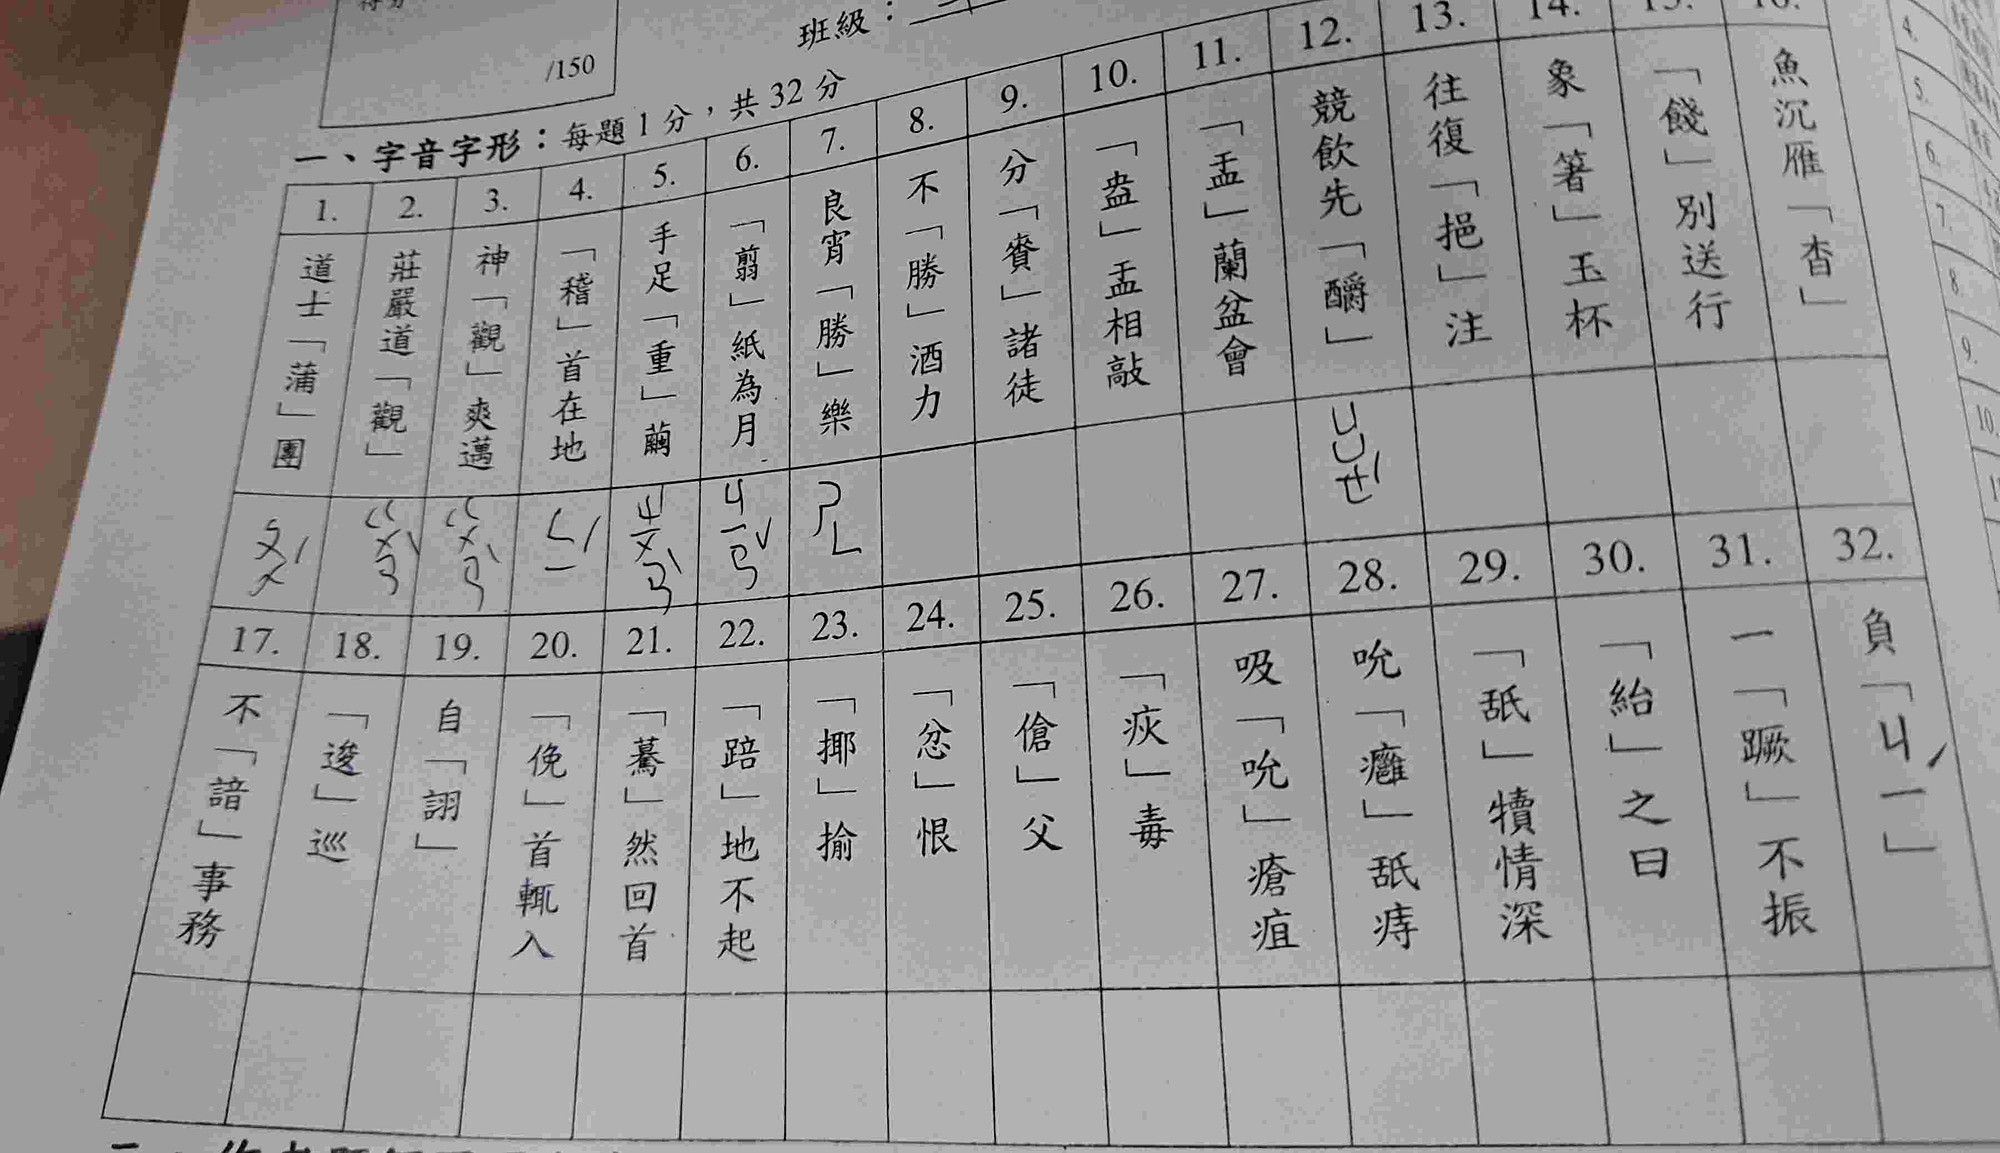 /150
班級：
一、字音字形：每題1分，共32分
1. 2. 3. 4. 5. 6. 7. 8. 9. 10. 11. 12. 13. 14.
道士「蒲」團
莊嚴道「觀」
神「觀」爽邁
「稽」首在地
手足「重」繭
「翦」紙為月
良宵「勝」樂
不「勝」酒力
分「賚」諸徒
「盎」盂相敲
「盂」蘭盆會
競飲先「釂」
往復「挹」注
象「箸」玉杯
「餞」別送行
魚沉雁「杳」
ㄆㄨˊ
ㄍㄨㄢˋ
ㄍㄨㄢˋ
ㄑㄧˊ
ㄐㄧㄢˇ
ㄕㄥ
17. 18. 19. 20. 21. 22. 23. 24. 25. 26. 27. 28. 29. 30. 31. 32.
不「諳」事務
「逡」巡
自「詡」
「俛」首輒入
「驀」然回首
「踣」地不起
「揶」揄
「忿」恨
「傖」父
「疢」毒
吸「吮」瘡疽
吮「癰」舐痔
「舐」犢情深
「紿」之曰
一「蹶」不振
負「ㄐㄧˊ」
4.
5.
6.
7.
8.
9.
10.